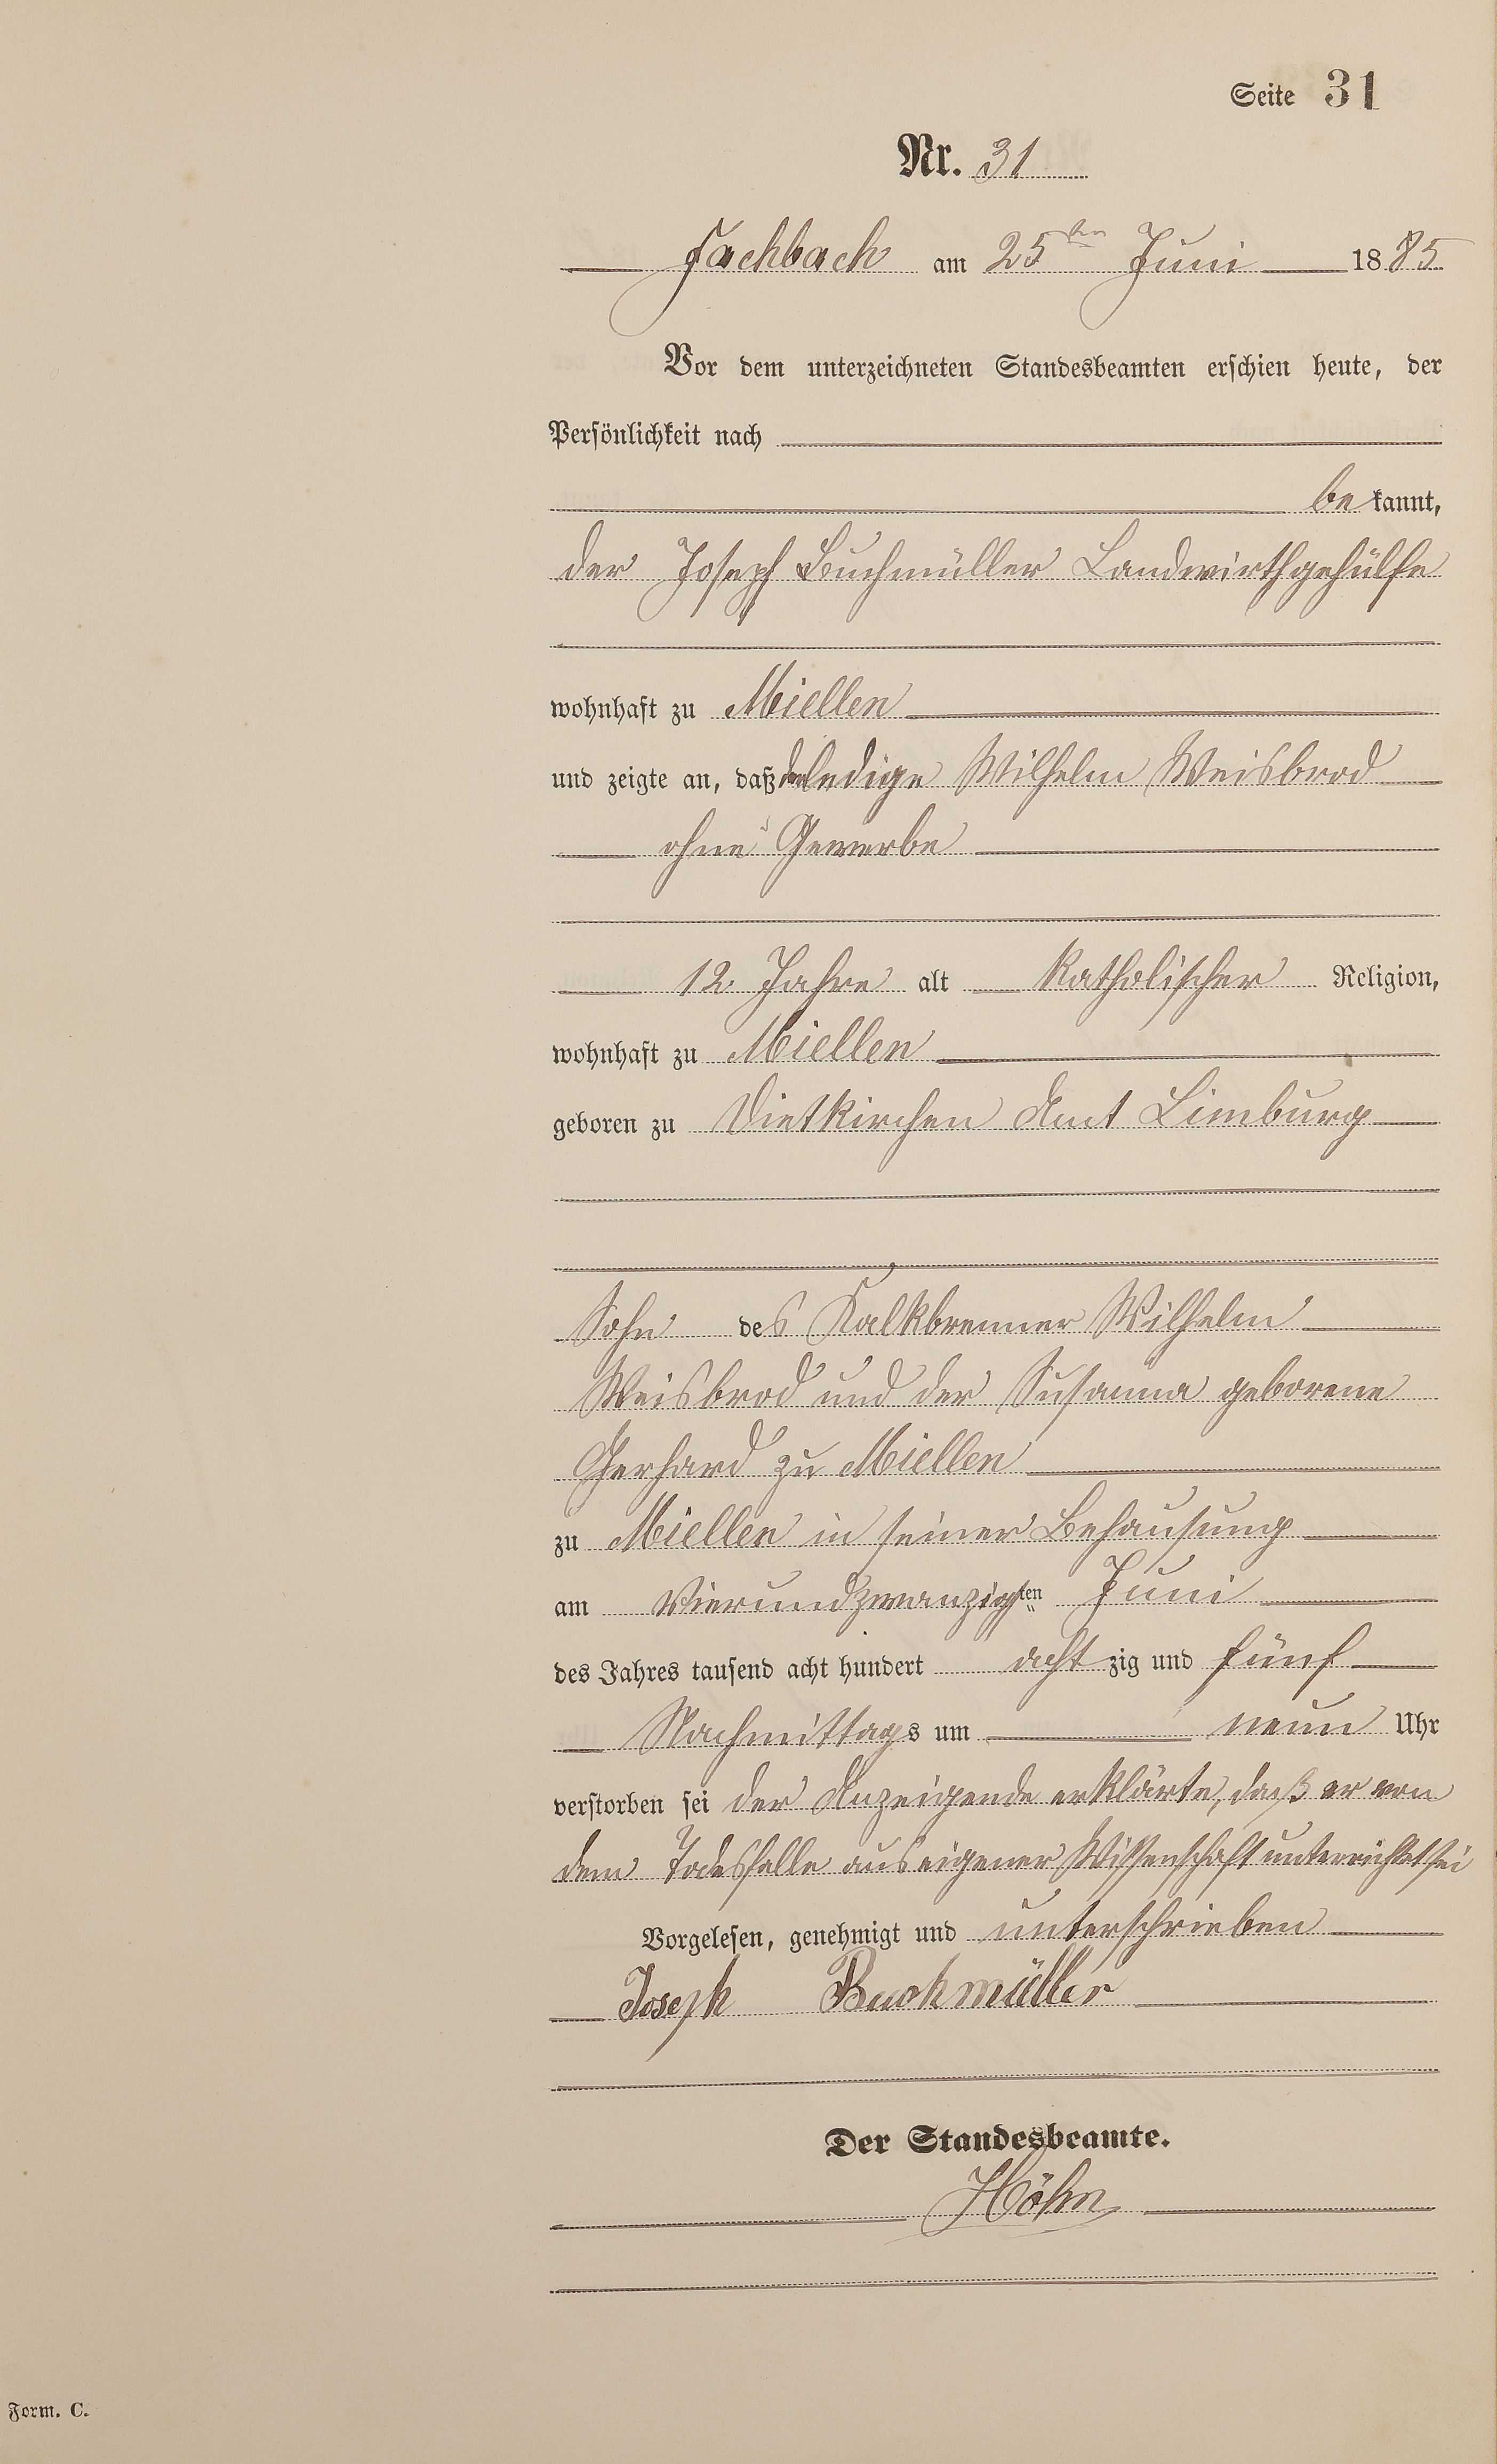 Seite 31
Nr. 31
Fachbach am 25ten Juni 1885
Vor dem unterzeichneten Standesbeamten erschien heute, der
Persönlichkeit nach
bekannt,
der Joseph Buchmüller Landwirthgehülfe
wohnhaft zu Miellen
und zeigte an, daß der ledige Wilhelm Weisbrod
ohne Gewerbe
12 Jahre alt Katholischer Religion,
wohnhaft zu Miellen
geboren zu Dietkirchen Amt Limburg
Sohn des Kalkbrenner Wilhelm
Weisbrod und der Susanna geborene
Gerhard zu Miellen
zu Miellen in seiner Behausung
am Vierundzwanzigsten Juni
des Jahres tausend acht hundert achtzig und fünf
Nachmittags um neun Uhr
verstorben sei der Anzeigende erklärte, daß er von
dem Todesfalle aus eigener Wissenschaft unterrichtet sei
Vorgelesen, genehmigt und unterschrieben
Joseph Buchmüller
Der Standesbeamte.
Höhn
Form. C.